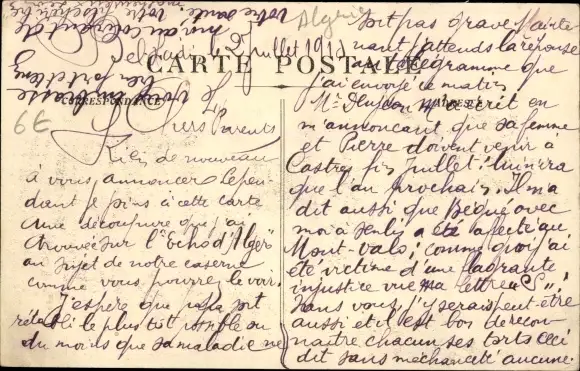 Algérie
6E
CARTE POSTALE
CORRESPONDANCE
le 2 juillet 191
Chers Parents
Rien de nouveau
à vous annoncer. Cepen-
dant je joins à cette carte
une découpure que j'ai
trouvée sur l'"Echo d'Alger"
au sujet de notre caserne
comme vous pourrez le voir.
J'espère que papa soit
rétabli le plus tôt possible ou
du moins que sa maladie ne
soit pas grave. Mainte-
nant j'attends la réponse
au télégramme que
j'ai envoyé ce matin.
Mr m'a écrit en
m'annonçant que sa femme
et Pierre doivent venir à
Castres fin Juillet. Lui n'ira
que l'an prochain. Il m'a
dit aussi que Bégué avec
moi à Senlis a été affecté au
Mont-Valo; comme quoi j'ai
été victime d'une flagrante
injustice vu ma lettre "S";
sans vous, j'y serais peut-être
aussi et il est bon de recon-
naître chacun ses torts ceci
dit sans méchanceté aucune.
Je vous embrasse
bien fort et
moi au courant de
votre santé. Votre